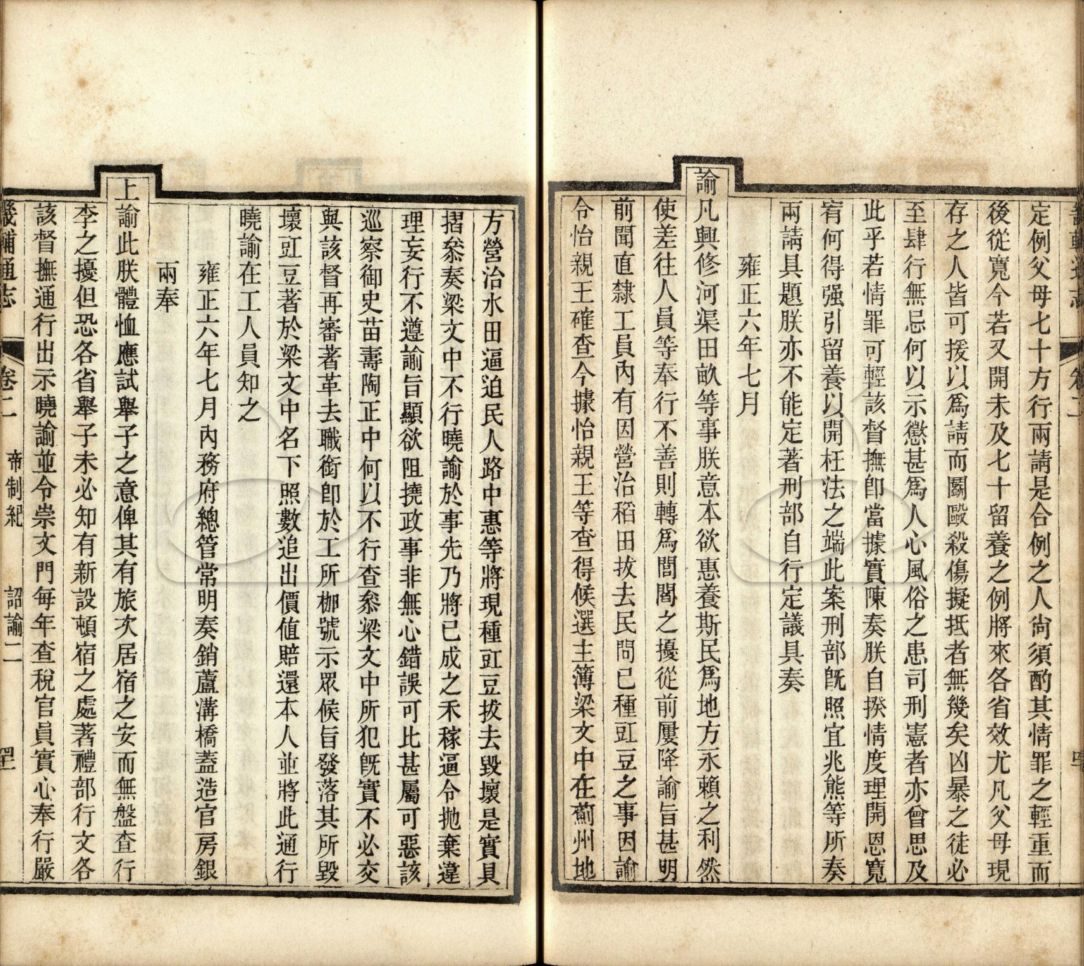 定例父母七十方行兩請是合例之人尙須酌其情罪之輕重而
後從寬今若又開未及七十留養之例將來各省效尤凡父母現
存之人皆可援以爲請而鬭毆殺傷擬抵者無幾矣凶暴之徒必
至肆行無忌何以示懲甚爲人心風俗之患司刑憲者亦曾思及
此乎若情罪可輕該督撫卽當據實陳奏朕自揆情度理開恩寬
宥何得强引留養以開枉法之端此案刑部旣照宜兆熊等所奏
兩請具題朕亦不能定著刑部自行定議具奏
雍正六年七月
諭凡興修河渠田畝等事朕意本欲惠養斯民爲地方永賴之利然
使差往人員等奉行不善則轉爲閭閻之擾從前屢降諭旨甚明
前聞直隸工員內有因營治稻田拔去民間已種豇豆之事因諭
令怡親王確查今據怡親王等查得候選主簿梁文中在薊州地
方營治水田逼迫民人路中惠等將現種豇豆拔去毀壞是實具
摺叅奏梁文中不行曉諭於事先乃將已成之禾稼逼令抛棄違
理妄行不遵諭旨顯欲阻撓政事非無心錯誤可比甚屬可惡該
巡察御史苗壽陶正中何以不行查叅梁文中所犯旣實不必交
與該督再審著革去職銜卽於工所枷號示眾候旨發落其所毀
壞豇豆著於梁文中名下照數追出價値賠還本人並將此通行
曉諭在工人員知之
雍正六年七月內務府總管常明奏銷蘆溝橋蓋造官房銀
兩奉
上諭此朕體恤應試舉子之意俾其有旅次居宿之安而無盤查行
李之擾但恐各省舉子未必知有新設頓宿之處著禮部行文各
該督撫通行出示曉諭並令崇文門每年查稅官員實心奉行嚴
畿輔通志 卷二 帝制紀 詔諭二